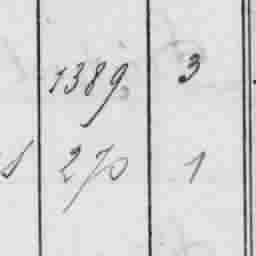 1389 3
270 1